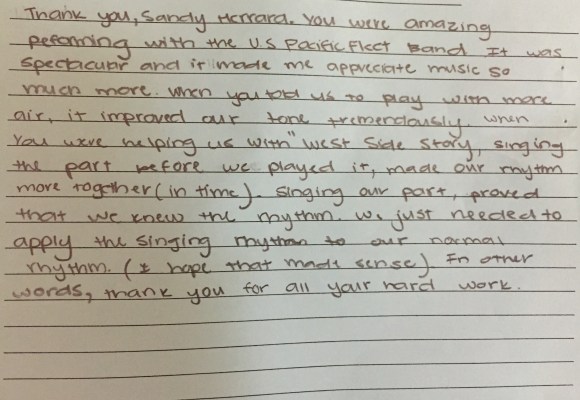 Thank you, Sandy Herrard. You were amazing
peforming with the U.S Pacific Fleet Band It was
spectacular and it made me appreciate music so
much more. When you told us to play with more
air, it improved our tone tremendously. When
you were helping us with "West Side Story, singing
the part before we played it, made our rhythm
more together (in time). Singing our part, proved
that we knew the rhythm. We just needed to
apply the singing rhythm to our normal
rhythm. (I hope that made sense). In other
words, thank you for all your hard work.